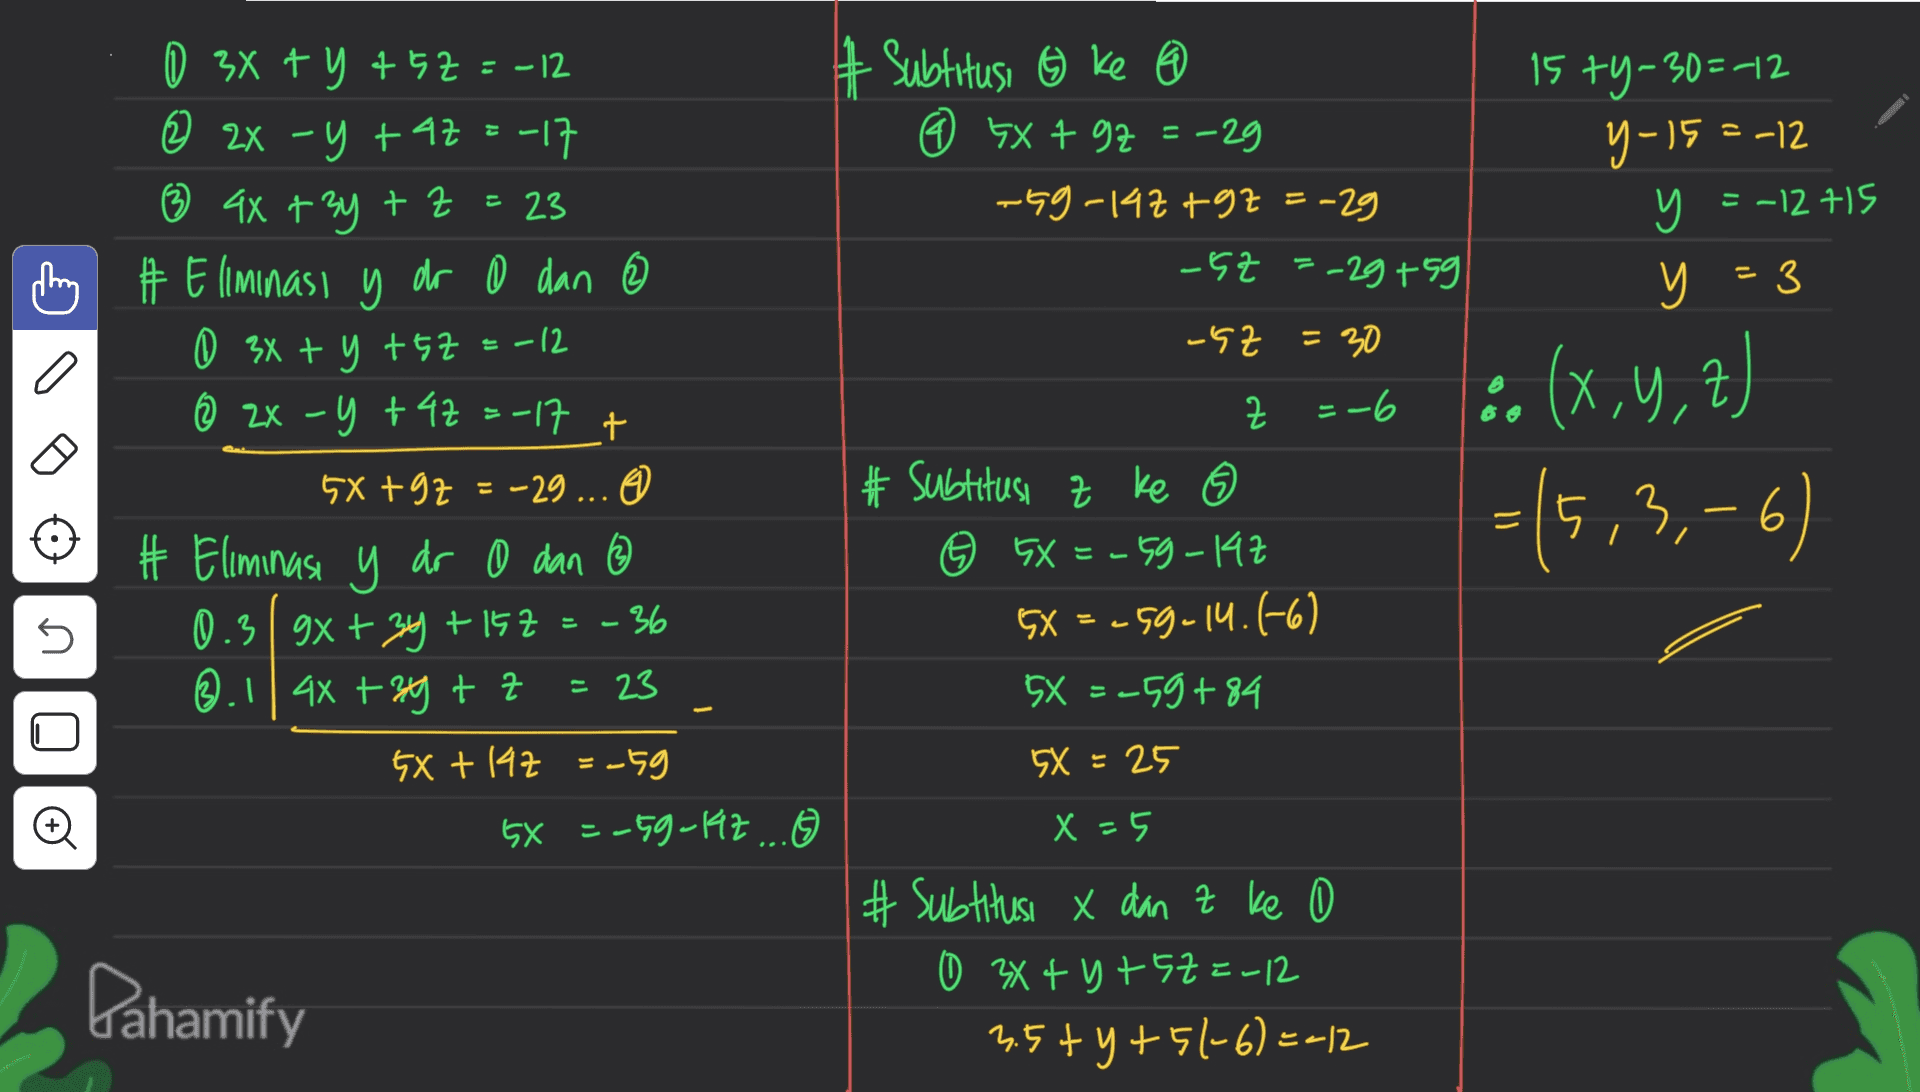 ① 3x + y + 5z = -12
② 2x - y + 4z = -17
③ 4x + 3y + z = 23
# Eliminasi y dr ① dan ②
① 3x + y + 5z = -12
② 2x - y + 4z = -17 +
5x + 9z = -29 ... ④
# Eliminasi y dr ① dan ③
①.3 | 9x + 3y + 15z = -36
③.1 | 4x + 3y + z = 23 -
5x + 14z = -59
5x = -59 - 14z ... ⑤
# Subtitusi ⑤ ke ④
④ 5x + 9z = -29
-59 - 14z + 9z = -29
-5z = -29 + 59
-5z = 30
z = -6
# Subtitusi z ke ⑤
⑤ 5x = -59 - 14z
5x = -59 - 14.(-6)
5x = -59 + 84
5x = 25
x = 5
# Subtitusi x dan z ke ①
① 3x + y + 5z = -12
3.5 + y + 5(-6) = -12
15 + y - 30 = -12
y - 15 = -12
y = -12 + 15
y = 3
∴ (x, y, z)
= (5, 3, -6)
Pahamify